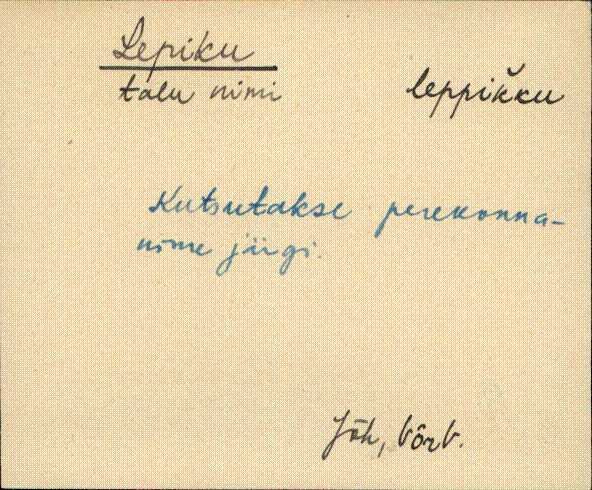 Lepiku
talu nimi leppikku
Kutsutakse perekonna-
nime järgi.
Jõh, Võrb.